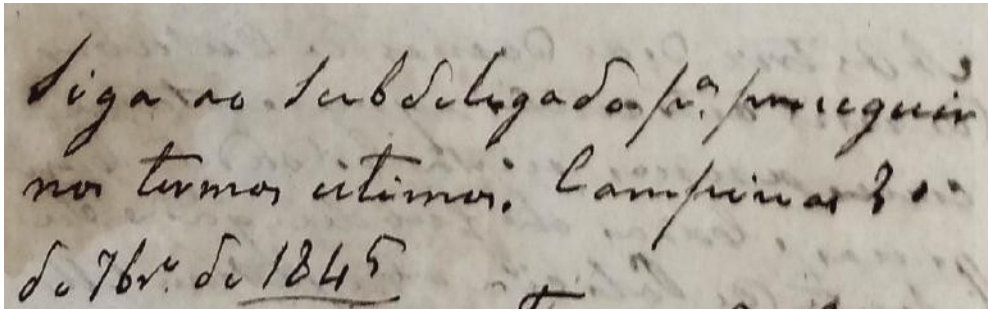 Siga ao Subdelegado pª. proseguir
nos termos ultimos. Campinas 30
de 7brº. de 1845